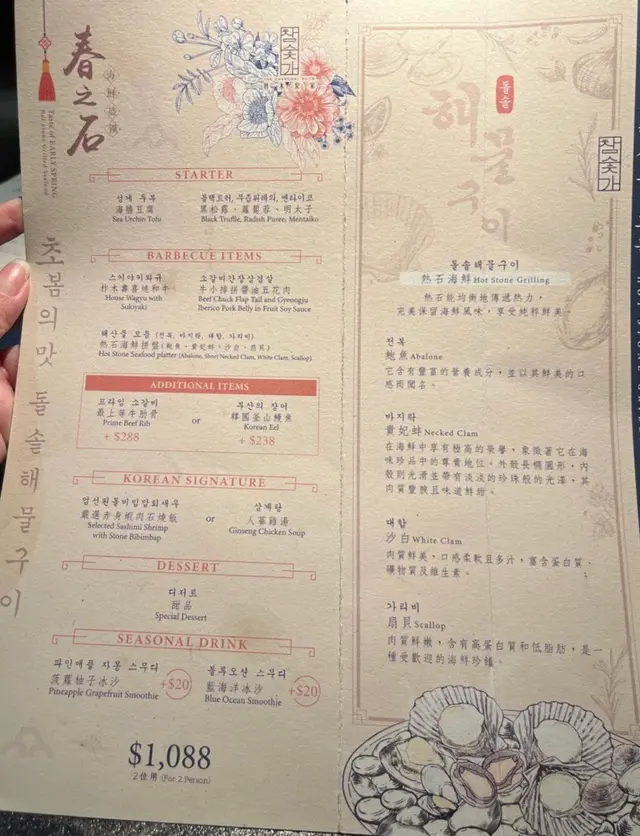 春之石
海鮮拼饌
Taste of EARLY SPRING
Hot Stone Grilled Seafood
초봄의 맛 돌솥해물구이
참숯가
STARTER
성게 두부
海膽豆腐
Sea Urchin Tofu
블랙트러, 무즙퓌레의, 멘타이코
黑松露、蘿蔔蓉、明太子
Black Truffle, Radish Puree, Mentaiko
BARBECUE ITEMS
스키야끼와규
杉木壽喜燒和牛
House Wagyu with
Sukiyaki
소갈비간장삼겹살
牛小排拼醬油五花肉
Beef Chuck Flap Tail and Gyeongju
Iberico Pork Belly in Fruit Soy Sauce
해산물 모듬 (전복, 바지락, 대합, 가리비)
熱石海鮮拼盤 (鮑魚、貴妃蚌、沙白、扇貝)
Hot Stone Seafood platter (Abalone, Short Necked Clam, White Clam, Scallop)
ADDITIONAL ITEMS
프라임 소갈비
最上等牛肋骨
Prime Beef Rib
+ $288
or
부산의 장어
韓國釜山鰻魚
Korean Eel
+ $238
KOREAN SIGNATURE
엄선된돌비빔밥회새우
嚴選赤身蝦肉石燒飯
Selected Sashimi Shrimp
with Stone Bibimbap
or
삼계탕
人蔘雞湯
Ginseng Chicken Soup
DESSERT
디저트
甜品
Special Dessert
SEASONAL DRINK
파인애플 자몽 스무디
菠蘿柚子冰沙
Pineapple Grapefruit Smoothie
+$20
블루오션 스무디
藍海洋冰沙
Blue Ocean Smoothie
+$20
$1,088
2位用 (For 2 Person)
돌솥
해물구이
참숯가
돌솥해물구이
熱石海鮮 Hot Stone Grilling
熱石能均衡地傳遞熱力，
完美保留海鮮風味，享受純粹鮮美。
전복
鮑魚 Abalone
它含有豐富的營養成分，並以其鮮美的口
感而聞名。
바지락
貴妃蚌 Necked Clam
在海鮮中享有極高的榮譽，象徵著它在海
味珍品中的尊貴地位。外殼長橢圓形，內
殼則光滑並帶有淡淡的珍珠般的光澤，其
肉質豐腴且味道鮮甜。
대합
沙白 White Clam
肉質鮮美，口感柔軟且多汁，富含蛋白質、
礦物質及維生素。
가리비
扇貝 Scallop
肉質鮮嫩，含有高蛋白質和低脂肪，是一
種受歡迎的海鮮珍饈。